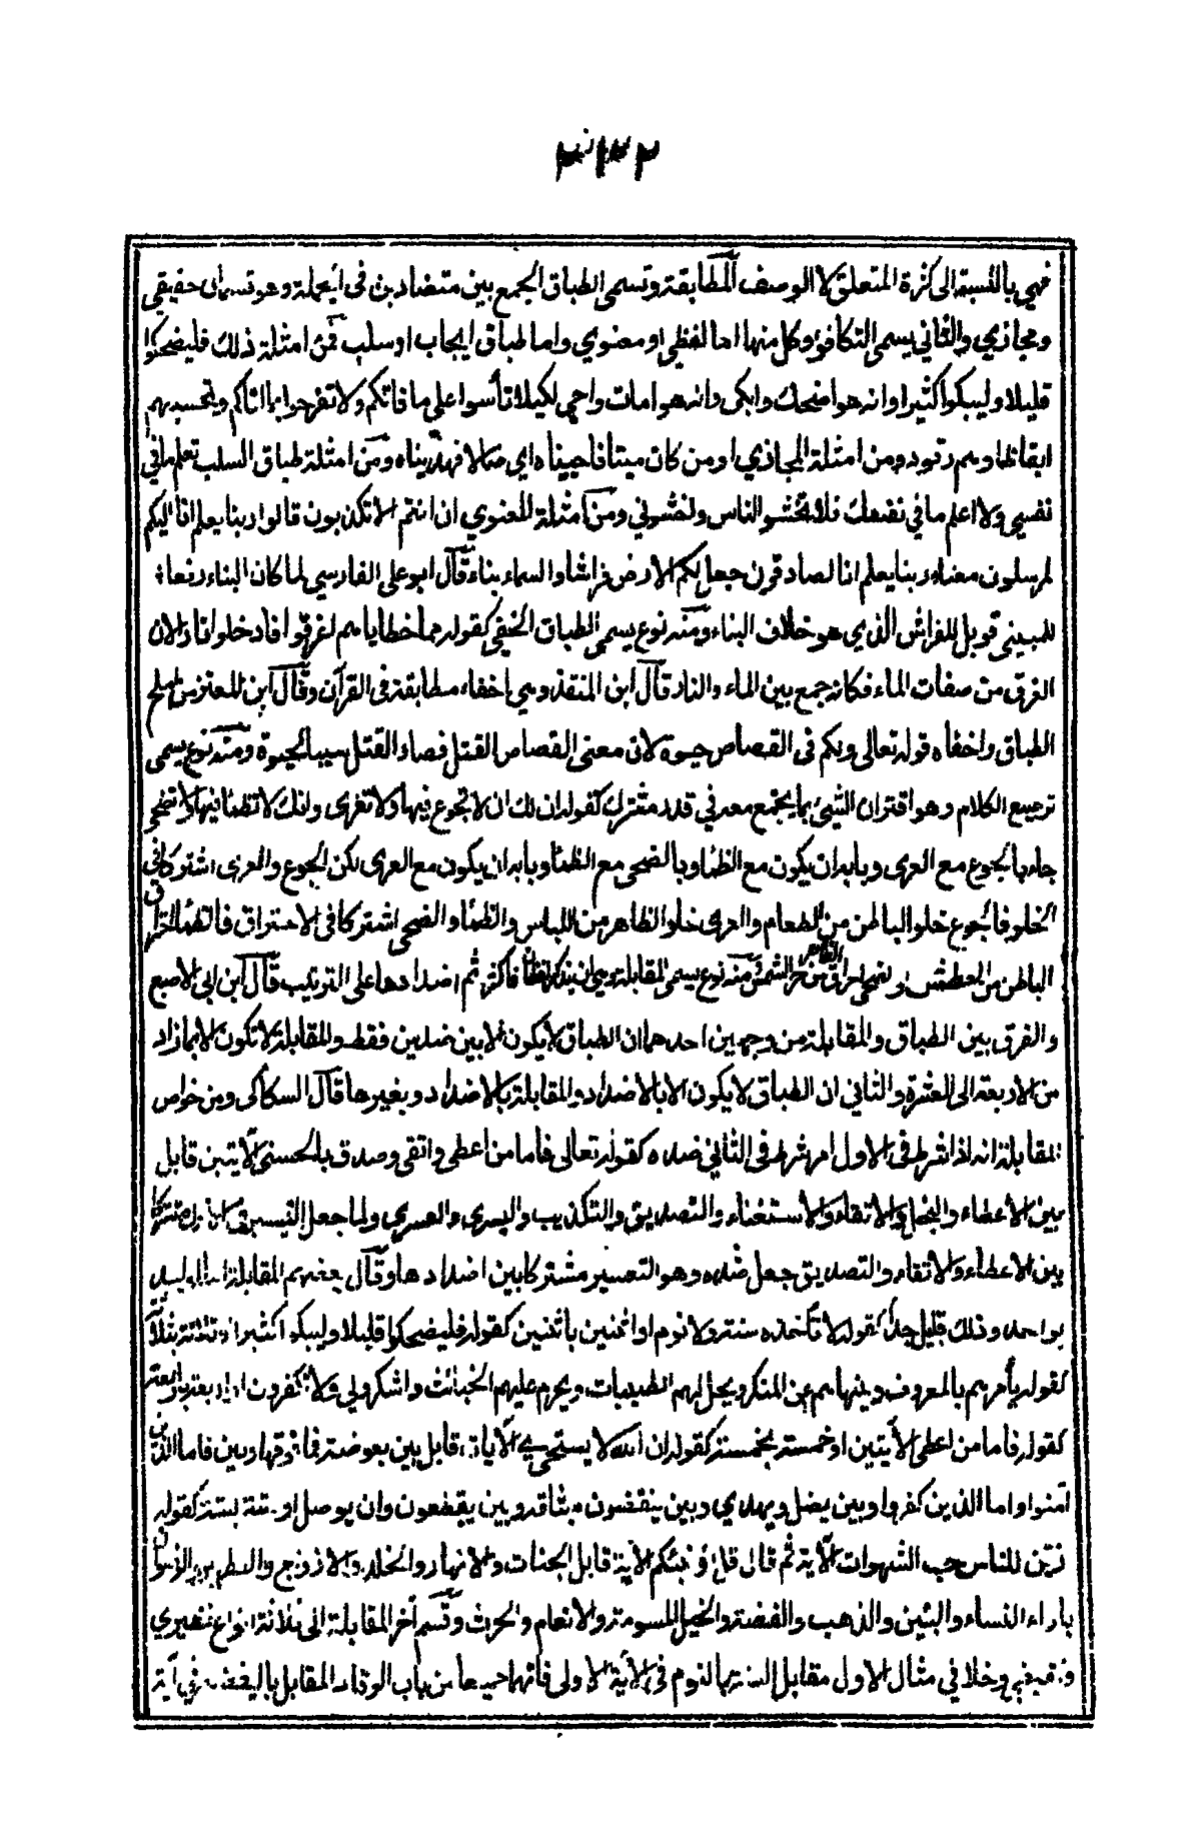 فهي بالنسبة الى كثرة المتعلق لا الوصف المطابقة وتسمى الطباق الجمع بين متضادين في الجملة وهو قسمان حقيقي
ومجازي والثاني يسمى التكافؤ وكل منهما اما لفظي او معنوي واما طباق ايجاب او سلب فمن امثلة ذلك فليضحكوا
قليلا وليبكوا كثيرا وانه هو اضحك وابكى وانه هو امات واحيى لكيلا تأسوا على ما فاتكم ولا تفرحوا بما اتاكم وتحسبهم
ايقاظا وهم رقود ومن امثلة المجازي او من كان ميتا فاحييناه اي ضالا فهديناه ومن امثلة طباق السلب تعلم ما في
نفسي ولا اعلم ما في نفسك فلا تخشوا الناس واخشوني ومن امثلة المعنوي ان انتم الا تكذبون قالوا ربنا يعلم انا اليكم
لمرسلون معناه ربنا يعلم انا لصادقون جعل لكم الارض فراشا والسماء بناء قال ابو علي الفارسي لما كان البناء رفعا
للمبني قوبل للفراش الذي هو خلاف البناء ومنه نوع يسمى الطباق الخفي كقوله مما خطاياهم اغرقوا فادخلوا نارا لان
الغرق من صفات الماء فكانه جمع بين الماء والنار قال ابن المنقذ وهي اخفى مطابقة في القرآن وقال ابن المعتز من املح
الطباق واخفاه قوله تعالى ولكم في القصاص حيوة لان معنى القصاص القتل فصار القتل سبب الحيوة ومنه نوع يسمى
ترصيع الكلام وهو اقتران الشيئ بما يجتمع معه في قدر مشترك كقوله ان لك ان لا تجوع فيها ولا تعرى وانك لا تظمأ فيها ولا تضحى
جاء بالجوع مع العرى وبابه ان يكون مع الظمأ وبالضحى مع الظمأ وبابه ان يكون مع العرى لكن الجوع والعرى اشتركا في
الخلو فالجوع خلو الباطن من الطعام والعرى خلو الظاهر من اللباس والظمأ والضحى اشتركا في الاحتراق فالظمأ احتراق
الباطن من العطش والضحى احتراق الظاهر من حر الشمس ومنه نوع يسمى المقابلة وهي ان يذكر لفظان فاكثر ثم اضدادها على الترتيب قال ابن ابي الاصبع
والفرق بين الطباق والمقابلة من وجهين احدهما ان الطباق لا يكون الا بين ضدين فقط والمقابلة لا تكون الا بما زاد
من الاربعة الى العشرة والثاني ان الطباق لا يكون الا بالاضداد والمقابلة بالاضداد وبغيرها قال السكاكي ومن خواص
المقابلة انه اذا شرط في الاول امر شرط في الثاني ضده كقوله تعالى فاما من اعطى واتقى وصدق بالحسنى الآيتين قابل
بين الاعطاء والبخل والاتقاء والاستغناء والتصديق والتكذيب واليسرى والعسرى ولما جعل التيسير في الاول مشتركا
بين الاعطاء والاتقاء والتصديق جعل ضده وهو التعسير مشتركا بين اضدادها وقال بعضهم المقابلة اما لواحد
بواحد وذلك قليل جدا كقوله لا تأخذه سنة ولا نوم او اثنين باثنين كقوله فليضحكوا قليلا وليبكوا كثيرا او ثلاثة بثلاثة
كقوله يأمرهم بالمعروف وينهاهم عن المنكر ويحل لهم الطيبات ويحرم عليهم الخبائث واشكروا لي ولا تكفرون او اربعة باربعة
كقوله فاما من اعطى الآيتين او خمسة بخمسة كقوله ان الله لا يستحيي الآيات قابل بين بعوضة فما فوقها وبين فاما الذين
آمنوا واما الذين كفروا وبين يضل ويهدي وبين ينقضون ميثاقه وبين يقطعون وان يوصل او ستة بستة كقوله
زين للناس حب الشهوات الآية ثم قال قل اؤنبئكم الآية قابل الجنات والانهار والخلد والازواج والتطهير والرضوان
بازاء النساء والبنين والذهب والفضة والخيل المسومة والانعام والحرث وقسم آخر المقابلة الى ثلاثة انواع نظيري
ونقيضي وخلافي مثال الاول مقابل السنة بالنوم في الآية الاولى فانهما جميعا من باب الرقاد المقابل باليقظة في آية